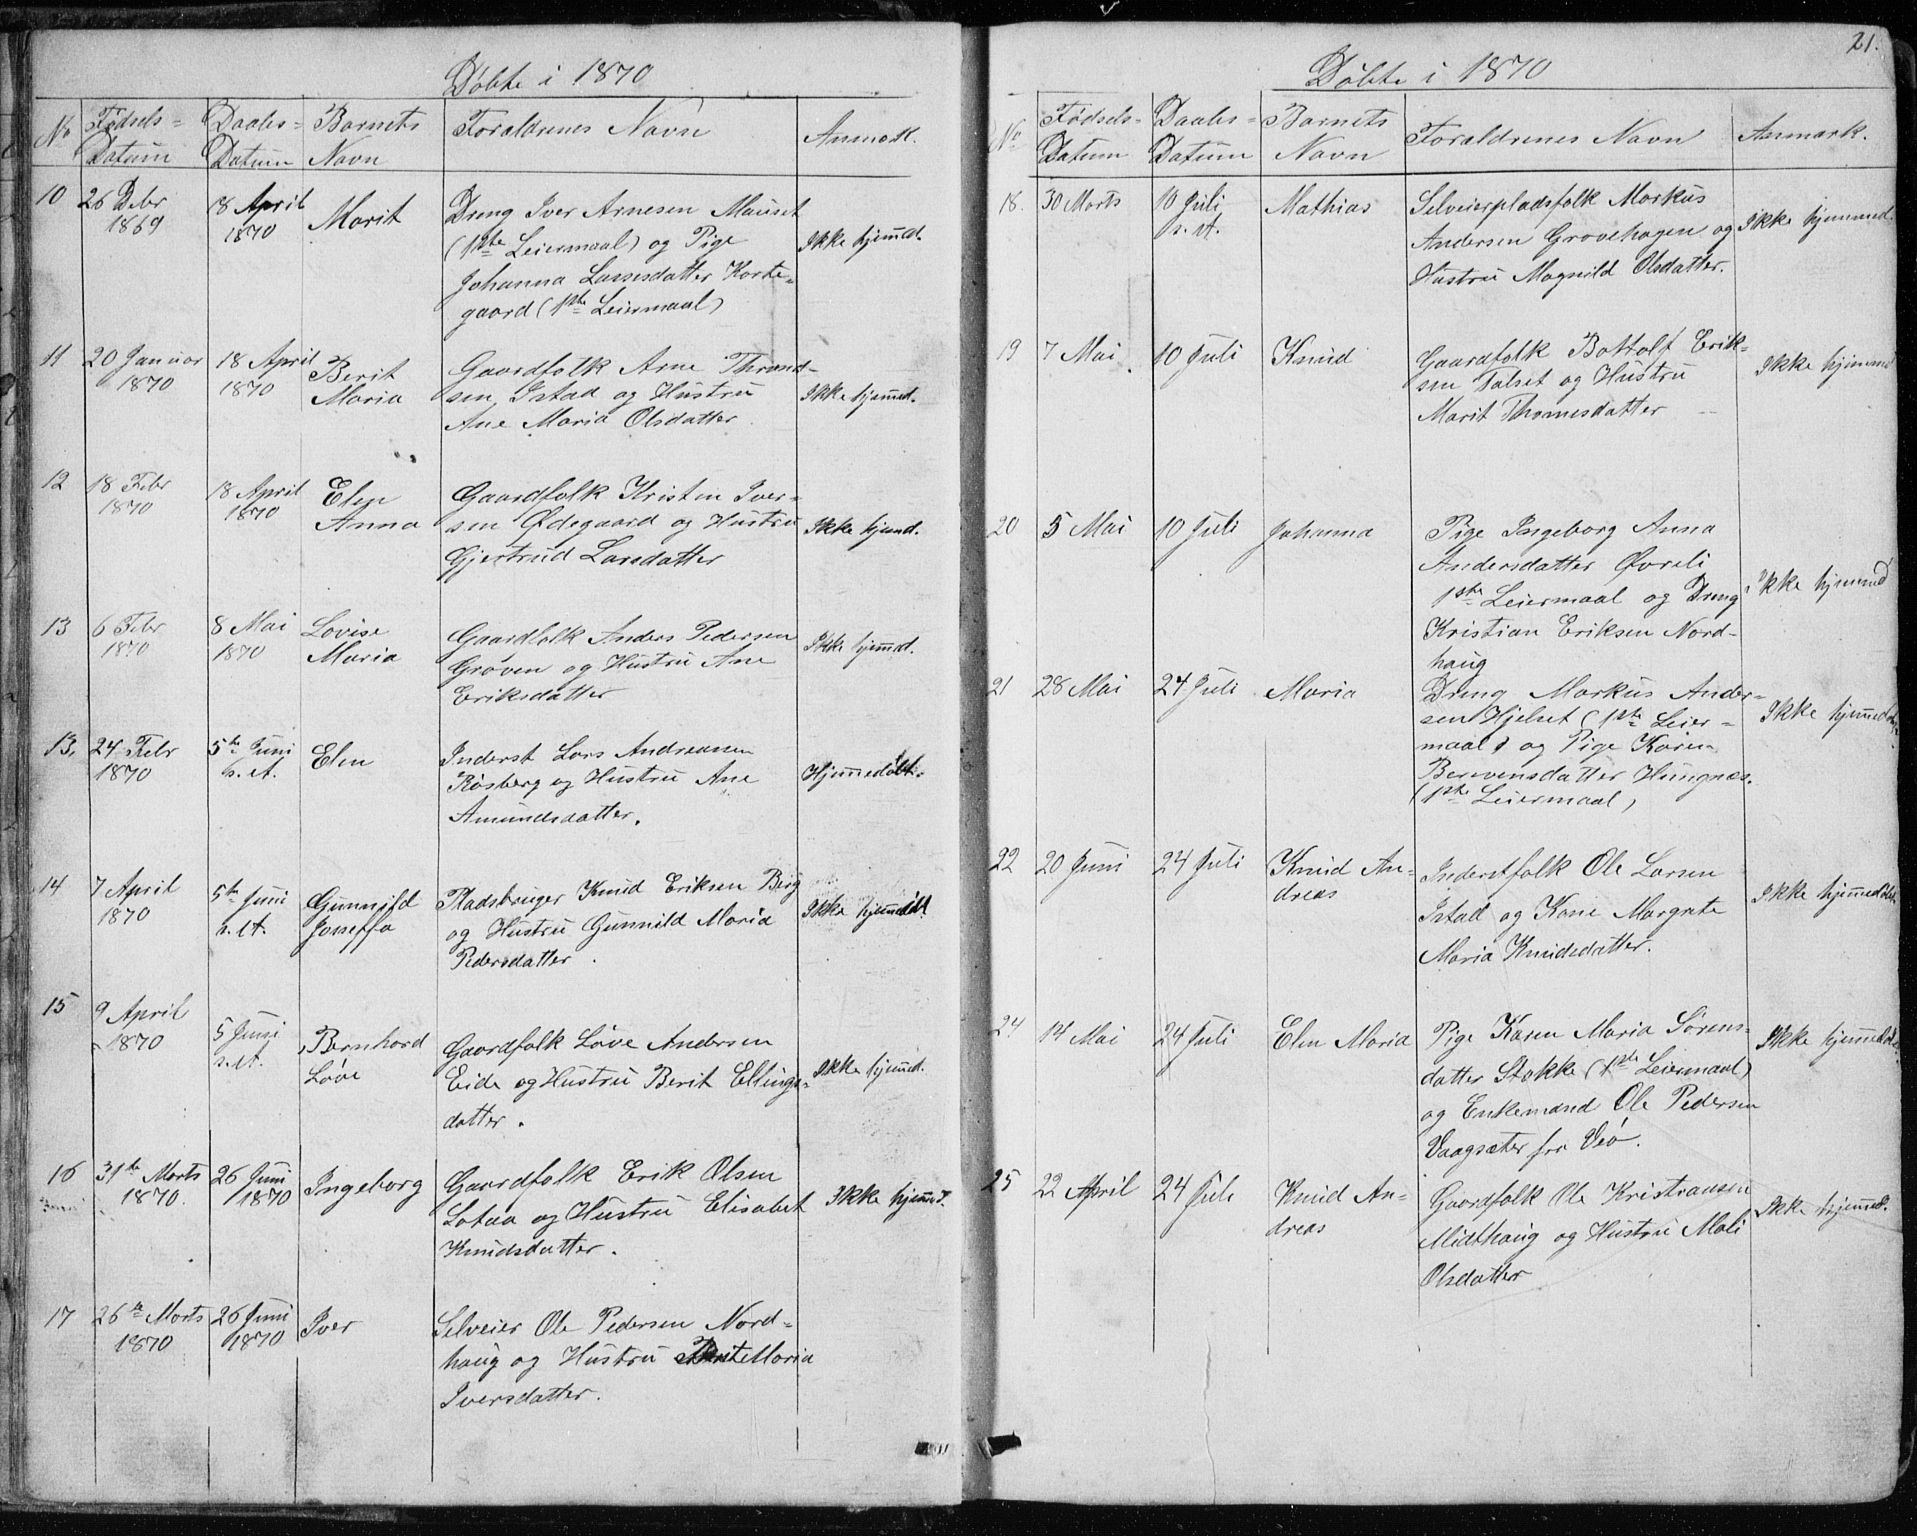 Døbte i 1870
No Fødsels= Datum Daabs= Datum Barnets Navn Forældrenes Navn Anmærk.
10 26 Debr 1869 18 April 1870 Marit
Dreng Iver Arnesen Mauset
(1ste Leiermaal) og Pige
Johanna Larsesdatter Korte-
gaard (1ste Leiermaal)
Ikke hjemmed.
11 20 Januar 1870 18 April 1870 Berit Maria
Gaardfolk Arne Thrond-
sen Istad og Hustru
Ane Maria Olsdatter
Ikke hjemmed.
12 18 Febr 1870 18 April 1870 Elen Anna
Gaardfolk Kristen Iver-
sen Ødegaard og Hustru
Gjertrud Larsdatter
Ikke hjemmd.
13 6 Febr 1870 8 Mai 1870 Lovise Maria
Gaardfolk Anders Pedersen
Grøven og Hustru Ane
Eriksdatter
Ikke hjemmd.
13. 24 Febr 1870 5te Juni s. st. Elen
Inderst Lars Andreasen
Røsberg og Hustru Ane
Amundsdatter.
Hjemmedøbt.
14 7 April 1870 5te Juni s. st. Gunnild Joneffa
Pladsbruger Knud Eriksen Berg
og Hustru Gunnild Maria
Pedersdatter.
Ikke hjemmedøbt
15 9 April 1870 5 Juni s. st. Bernhard Løve
Gaardfolk Løve Andersen
Eide og Hustru Berit Ellings-
datter.
Ikke hjemmed.
16 31te Marts 1870. 26 Juni 1870 Ingeborg
Gaardfolk Erik Olsen
Lotaa og Hustru Elisabet
Knudsdatter.
Ikke hjemmed.
17 26te Marts 1870 26 Juni 1870 Iver
Selveier Ole Pedersen Nord-
haug og Hustru Marit Maria
Iversdatter.
21.
Døbte i 1870
No Fødsels- Datum Daabs- Datum Barnets Navn Forældrenes Navn Anmærk.
18. 30 Marts 10 Juli s. st. Mathias
Selveierpladsfolk Markus
Andersen Grovehagen og
Hustru Magnild Olsdatter.
Ikke hjemmed.
19 7 Mai 10 Juli Knud
Gaardfolk Bottolf Erik-
sen Talset og Hustru
Marit Thomesdatter
Ikke hjemmed
20 5 Mai 10 Juli Johanna
Pige Ingeborg Anna
Andersdatter Øvreli
1ste Leiermaal og Dreng
Kristian Eriksen Nord-
haug
Ikke hjemmed
21 28 Mai 24 Juli Maria
Dreng Markus Ander-
sen Hjelset (1ste Leier-
maal) og Pige Karen
Berevensdatter Hungnæs.
(1ste Leiermaal)
Ikke hjemmedøbt.
22 20 Juni 24 Juli Knud An- dreas
Inderstfolk Ole Larsen
Istad og Kone Margrete
Maria Knudsdatter.
Ikke hjemmedøbt.
24 14 Mai 24 Juli Elen Maria
Pige Karen Maria Sørens-
datter Stokke (1ste Leiermaal)
og Enkemand Ole Pedersen
Vaagsæter fra Veø.
Ikke hjemmedøbt.
25 22 April 24 Juli Knud An- dreas
Gaardfolk Ole Kristiansen
Midthaug og Hustru Mali
Olsdatter
Ikke hjemmed.